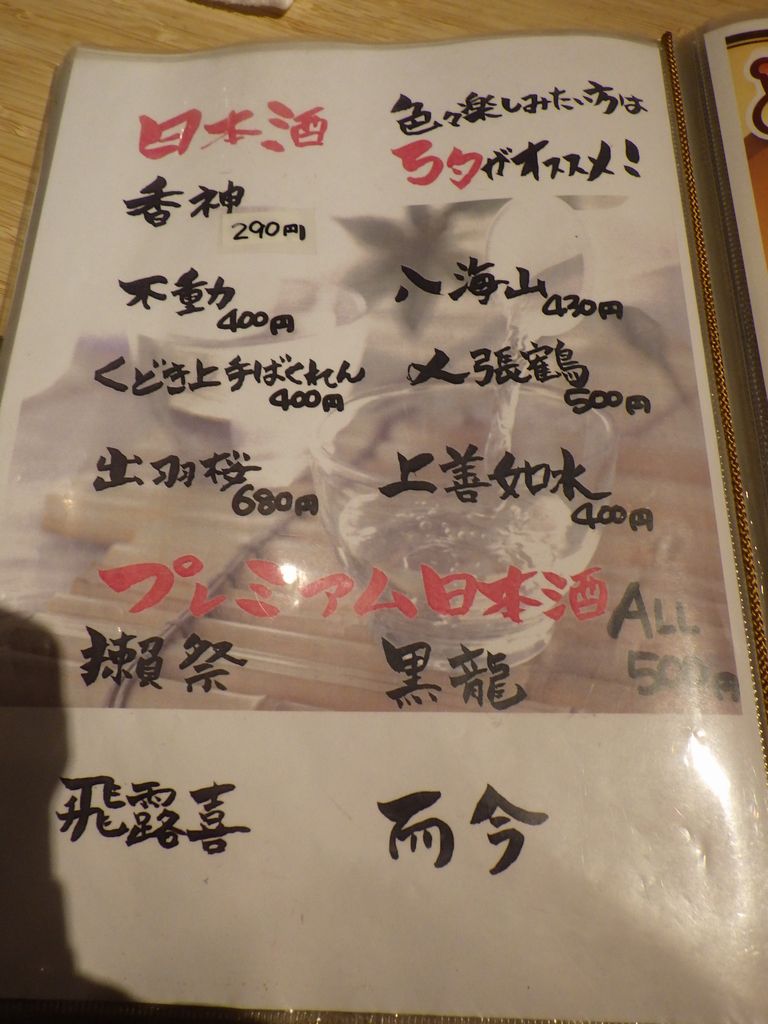 日本酒
色々楽しみたい方は
3勺がオススメ!
香神
290円
不動
400円
八海山
430円
くどき上手ばくれん
400円
〆張鶴
500円
出羽桜
680円
上善如水
400円
プレミアム日本酒
ALL
500円
獺祭
黒龍
飛露喜
而今